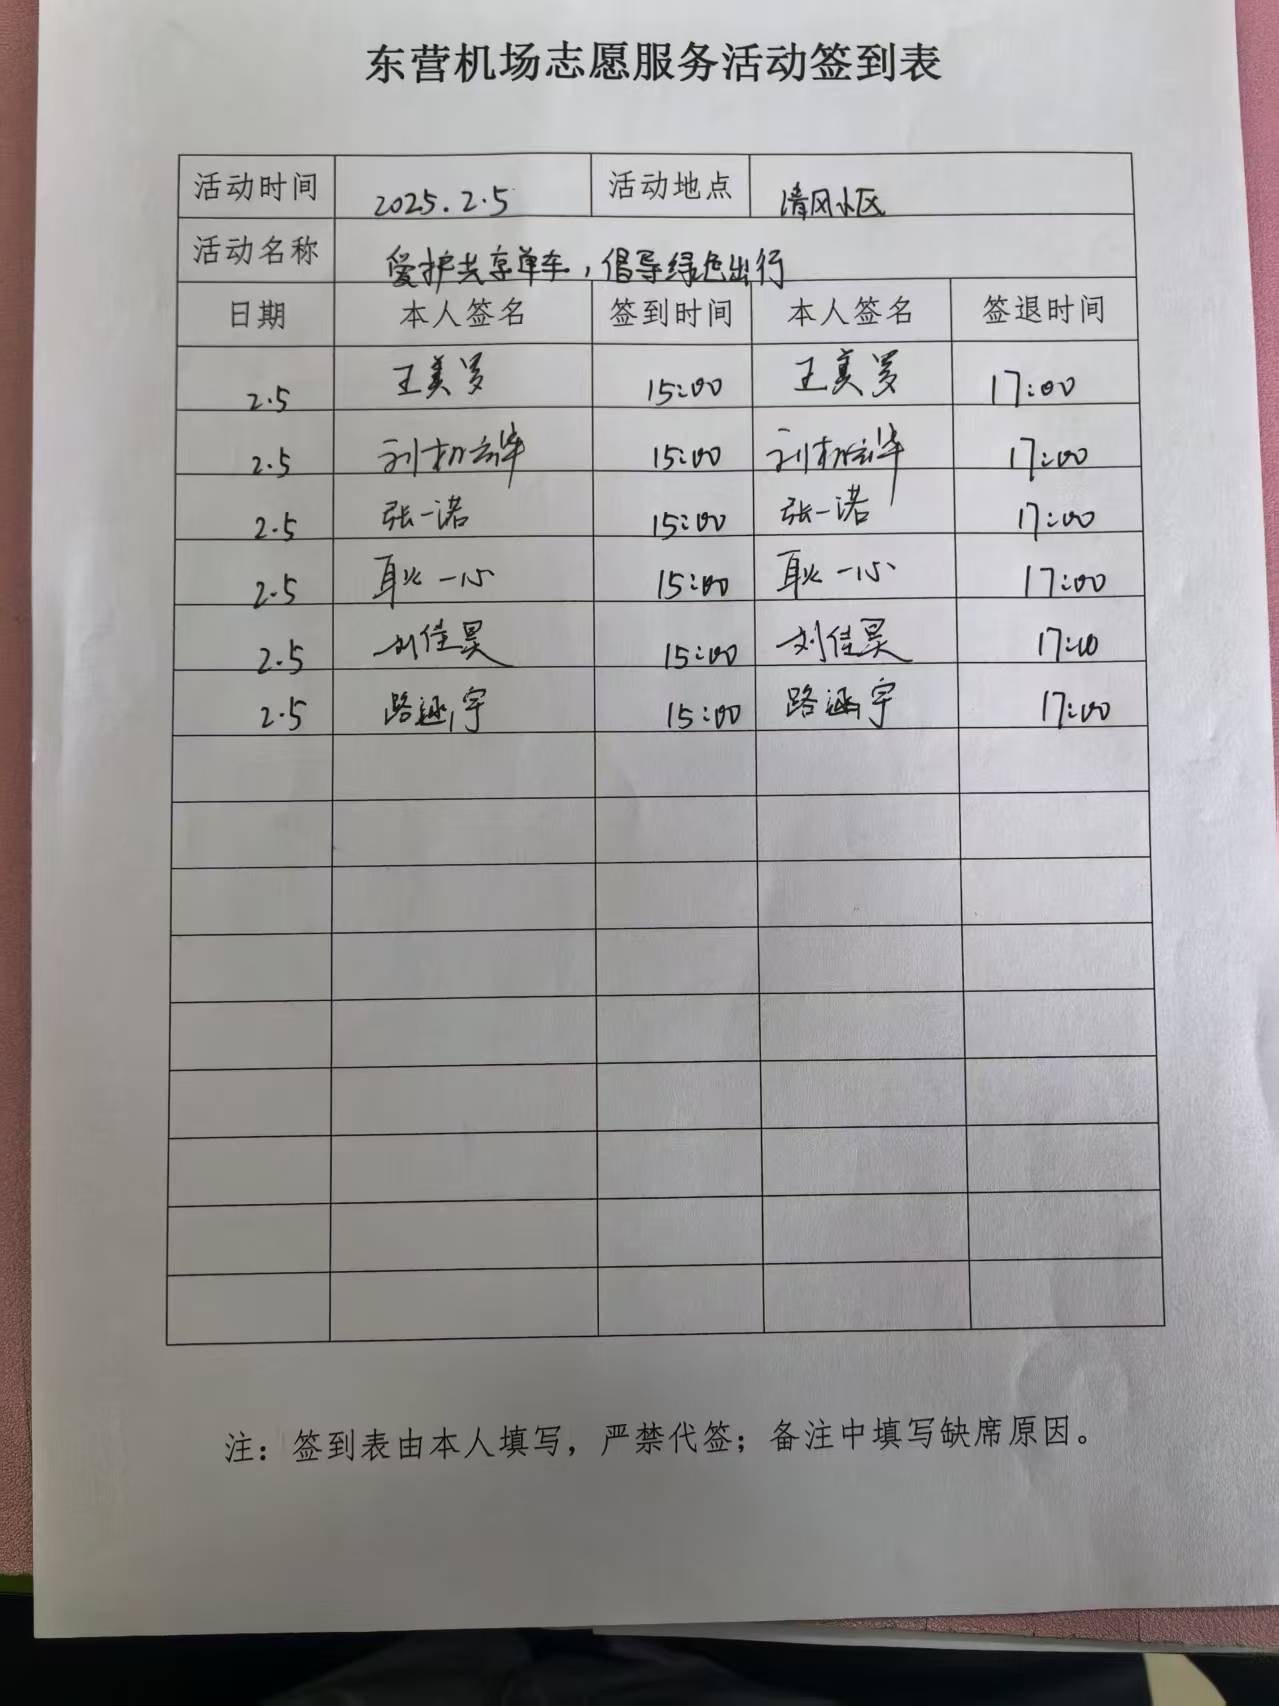 东营机场志愿服务活动签到表
活动时间 2025.2.5 活动地点 清风小区
活动名称 爱护共享单车，倡导绿色出行
日期 本人签名 签到时间 本人签名 签退时间
2.5 王美罗 15:00 王美罗 17:00
2.5 15:00 17:00
2.5 张一诺 15:00 张一诺 17:00
2.5 耿一心 15:00 耿一心 17:00
2.5 刘佳昊 15:00 刘佳昊 17:00
2.5 路涵宇 15:00 路涵宇 17:00
注：签到表由本人填写，严禁代签；备注中填写缺席原因。